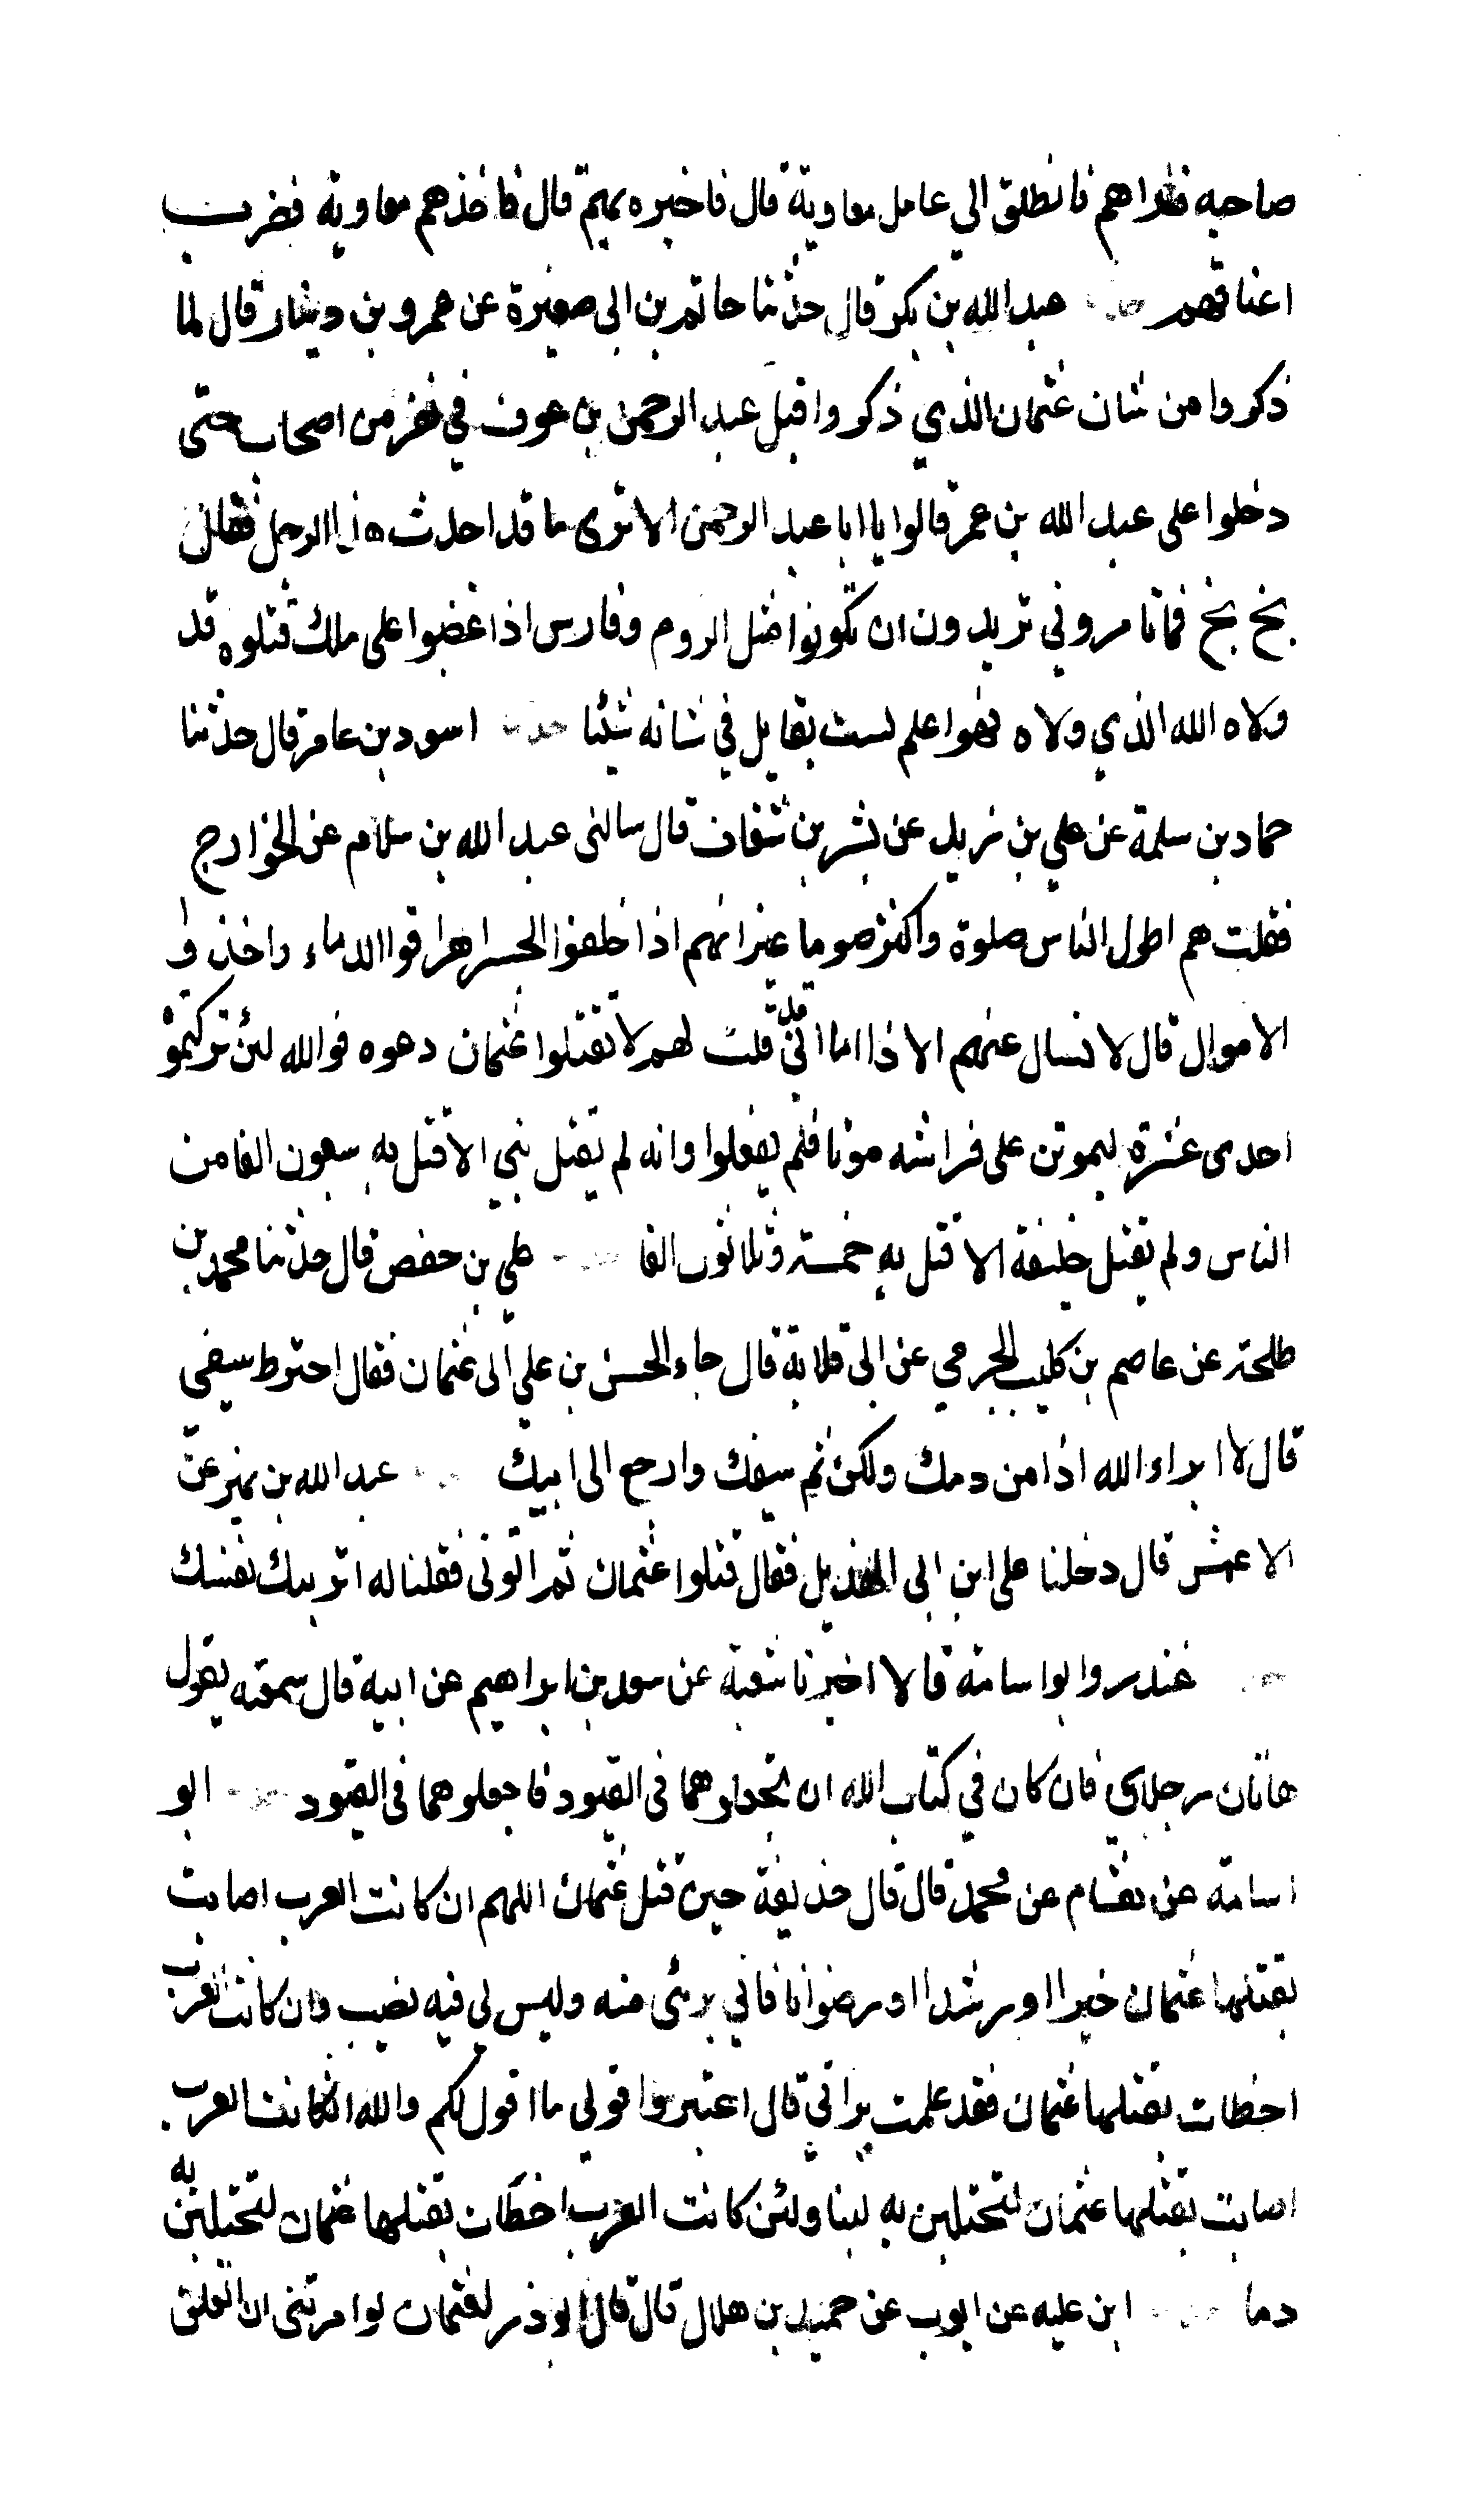 صاحبه فراهم فانطلق الي عامل معاوية قال فاخبره بهم قال فاخذهم معاوية فضرب
اعناقهم حدثنا عبد الله بن بكر قال حدثنا حاتم بن ابي صغيرة عن عمرو بن دينار قال لما
ذكروا من شان عثمان الذي ذكروا اقبل عبد الرحمن بن عوف في نفر من اصحابه حتى
دخلوا على عبد الله بن عمر قالوا يا ابا عبد الرحمن الا ترى ما قد احدث هذا الرجل فقال
بخ بخ فما تامروني تريدون ان تكونوا مثل الروم وفارس اذا غضبوا على ملك قتلوه قد
ولاه الله الذي ولاه فهو اعلم لست بقايل في شانه شيئا حدثنا اسود بن عامر قال حدثنا
حماد بن سلمة عن علي بن زيد عن بشر بن شغاف قال سالنى عبد الله بن سلام عن الخوارج
فقلت هم اطول الناس صلوة واكثر صوما غير انهم اذا خلفوا الجسر اهراقوا الدماء واخذوا
الاموال قال لا تسال عنهم الا ذا اما اني قد قلت لهم لا تقتلوا عثمان دعوه فوالله لئن تركتموه
احدى عشرة ليموتن على فراشه موتا فلم يفعلوا وانه لم يقتل نبي الا قتل به سبعون الفا من
الناس ولم يقتل خليفة الا قتل به خمسة وثلاثون الفا حدثنا علي بن حفص قال حدثنا محمد بن
طلحة عن عاصم بن كليب الجرمي عن ابي قلابة قال جاء الحسن بن علي الى عثمان فقال اخترط سيفي
قال لا ابراء الله اذا من دمك ولكن ثم سيفك وارجع الى ابيك حدثنا عبد الله بن نمير عن
الاعمش قال دخلنا على ابن ابي الهذيل فقال قتلوا عثمان ثم اتوني فقلنا له اتريبك نفسك
حدثنا غندر وابو اسامة قالا اخبرنا شعبة عن سعد بن ابراهيم عن ابيه قال سمعته يقول
هاتان رجلاي فان كان في كتاب الله ان تجعلوهما في القيود فاجعلوهما في القيود حدثنا ابو
اسامة عن هشام عن محمد قال قال حذيفة حين قتل عثمان اللهم ان كانت العرب اصابت
بقتلها عثمان خيرا او رشدا او رضوانا فاني برئ منه وليس لي فيه نصيب وان كانت العرب
اخطات بقتلها عثمان فقد علمت براتي قال اعتبروا قولي ما اقول لكم والله ان كانت العرب
اصابت بقتلها عثمان لتحتلبن به لبنا ولئن كانت العرب اخطات بقتلها عثمان لتحتلبن به
دما حدثنا ابن عليه عن ايوب عن حميد بن هلال قال قال ابو ذر لعثمان لو امرتني ان اتعلق